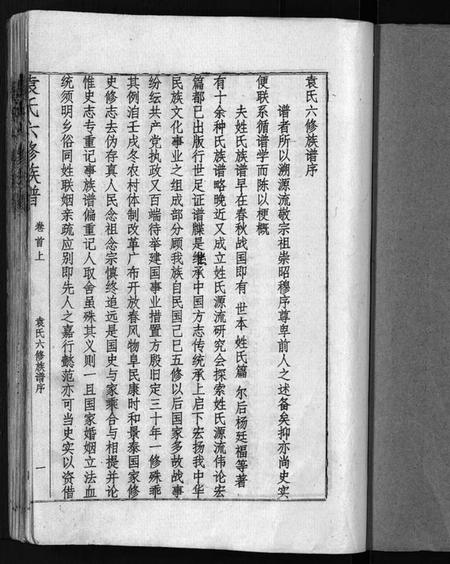 袁氏六修族谱序
谱者所以溯源流敬宗祖崇昭穆序尊卑前人之述备矣抑亦尚史实
便联系循谱学而陈以梗概
夫姓氏族谱早在春秋战国即有 世本 姓氏篇 尔后杨廷福等著
有十余种氏族谱略晚近又成立姓氏源流研究会探索姓氏源流伟论宏
篇都已出版行世足证谱牒是继承中国方志传统承上启下宏扬我中华
民族文化事业之组成部分顾我族自民国己巳五修以后国家多故战事
纷纭共产党执政又百端待举建国事业措置方殷旧定三十年一修殊乖
其例洎壬戌冬农村体制改革广布开放春风物阜民康时和景泰国家修
史修志去伪存真人民念祖念宗慎终追远是国史与家乘合与相提并论
惟史志专重记事族谱偏重记人取舍虽殊其义则一且国家婚姻立法血
统须明乡俗同姓联姻亲疏应别即先人之嘉行懿范亦可当史实以资借
袁氏六修族谱
卷首上
袁氏六修族谱序
一